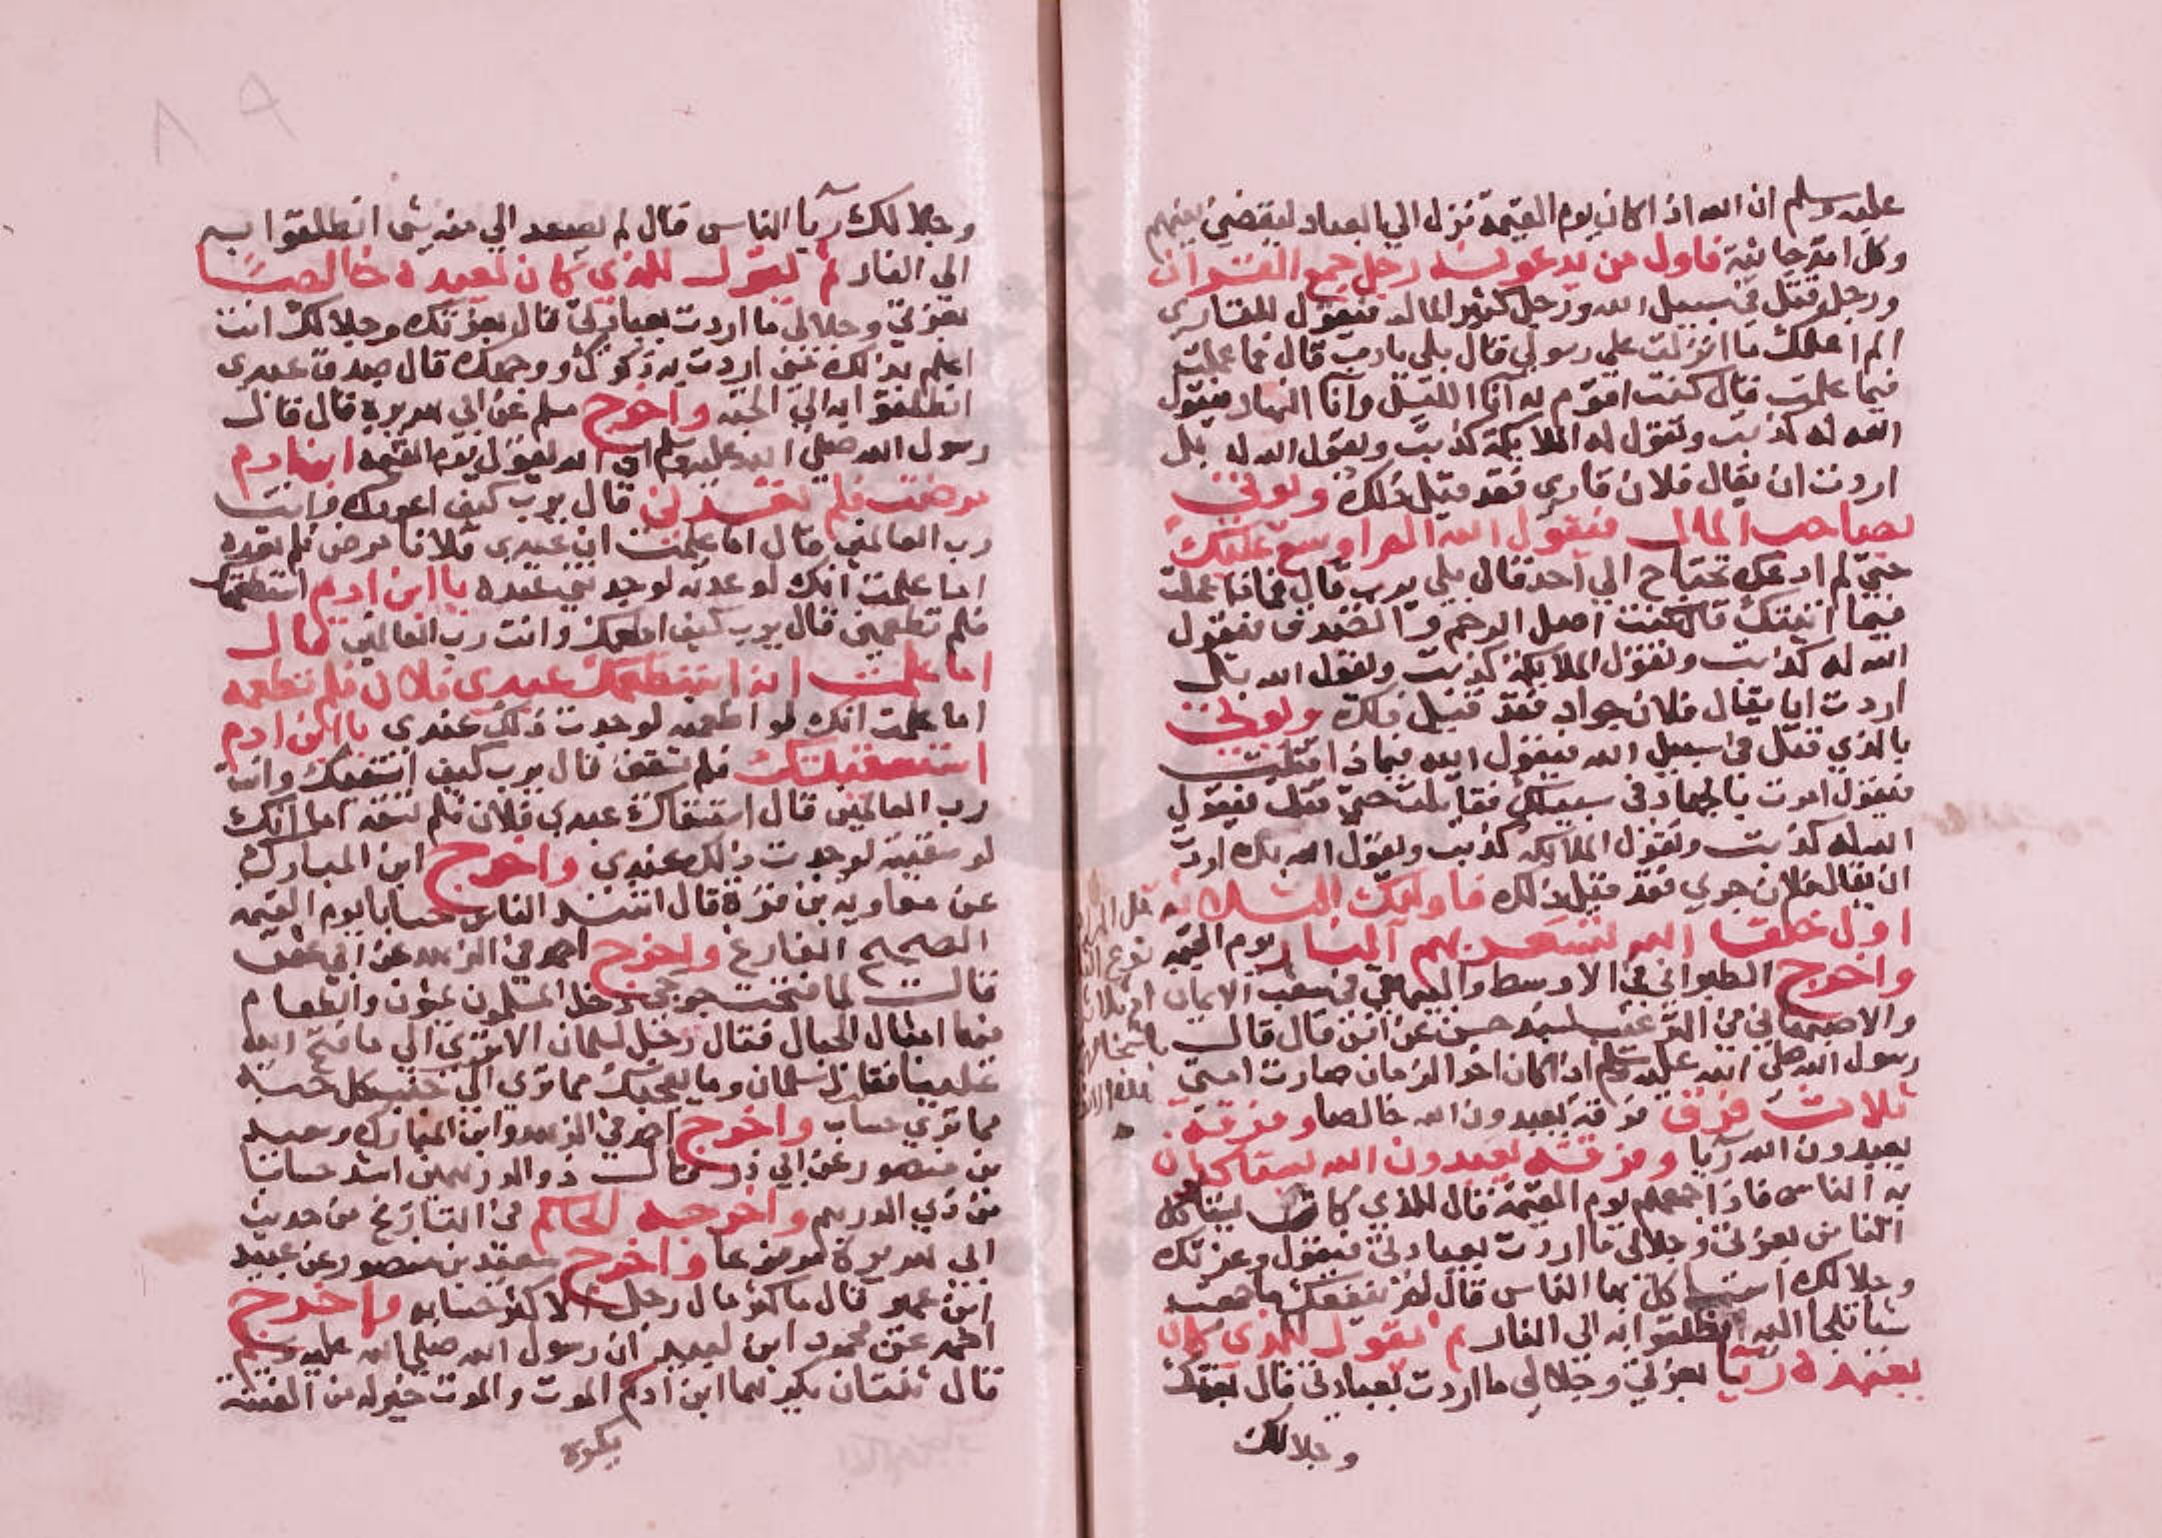 عليه وسلم ان الله اذا كان يوم القيمة نزل الي العباد ليقضي بينهم
وكل امة جاثية فاول من يدعو به رجل جمع القران
ورجل قتل في سبيل الله ورجل كثير المال فيقول للقاري
الم اعلمك ما انزلت علي رسولي قال بلي يا رب قال فما عملت
فيما علمت قال كنت اقوم به آنا الليل وآنا النهار فيقول
الله له كذبت وتقول له الملايكة كذبت ويقول الله له بل
اردت ان يقال فلان قاري فقد قيل ذلك ويوتي
بصاحب المال فيقول الله الم اوسع عليك
حتي لم ادعك تحتاج الي احد قال بلي يرب قال فماذا عملت
فيما اتيتك قال كنت اصل الرحم و فيقول
الله له كذبت وتقول الملايكة كذبت ويقول الله بل
اردت ان يقال فلان جواد فقد قيل ذلك ويوتي
بالذي قتل في سبيل الله فيقول الله فيماذا قتلت
فيقول امرت بالجهاد في سبيلك فقاتلت حتي قتلت فيقول
الله له كذبت وتقول الملايكة كذبت ويقول الله بل اردت
ان يقال فلان جري فقد قيل ذلك فاوليك الثلاثة
اول خلق الله تسعر بهم النار يوم القيمة
واخرج الطبراني في الاوسط والبيهقي في شعب الايمان
والاصبهاني في الترغيب بسند حسن عن انس قال قال
رسول الله صلي الله عليه وسلم اذا كان اخر الزمان صارت امتي
ثلاث فرق فرقة يعبدون الله خالصا وفرقة
يعبدون الله ريا وفرقة يعبدون الله يستاكلون
به الناس فاذا جمعهم يوم القيمة قال للذي كان يستاكل
الناس بعزتي وجلالي ما اردت بعبادتي فيقول وعزتك
وجلالك استاكل بها الناس قال لم ينفعك ما جمعت
شيا انطلقوا به الي النار ثم يقول للذي كان
يعبده ريا بعزتي وجلالي ما اردت بعبادتي قال بعزتك
وجلالك
وجلالك ريا الناس قال لم يصعد الي منه شي انطلقوا به
الي النار ثم يقول للذي كان يعبده خالصا
بعزتي وجلالي ما اردت بعبادتي قال بعزتك وجلالك انت
اعلم بذلك مني اردت به ذكرك ووجهك قال صدق عبدي
انطلقوا به الي الجنة واخرج مسلم عن ابي هريرة قال قال
رسول الله صلي الله عليه وسلم ان الله يقول يوم القيمة ابن ادم
مرضت فلم تعدني قال يرب كيف اعودك وانت
رب العالمين قال اما علمت ان عبدي فلانا مرض فلم تعده
اما علمت انك لو عدته لوجدتني عنده يا ابن ادم استطعمتك
فلم تطعمني قال يرب كيف اطعمك وانت رب العالمين قال
اما علمت انه استطعمك عبدي فلان فلم تطعمه
اما علمت انك لو اطعمته لوجدت ذلك عندي يا ابن ادم
استسقيتك فلم تسقني قال يرب كيف اسقيك وانت
رب العالمين قال استسقاك عبدي فلان فلم تسقه اما انك
لو سقيته لوجدت ذلك عندي واخرج ابن المبارك
عن معاوية بن قرة قال اشد الناس حسابا يوم القيمة
الصحيح الفارغ واخرج احمد في الزهد عن ابي
قال لما فتحت جوخي دخل المسلمون يمشون والطعام
فيها امثال الجبال فقال رجل لسلمان الا تري الي ما فتح الله
علينا فقال سلمان وما يعجبك مما تري الي جنب كل حبة
مما تري حساب واخرج احمد في الزهد وابن المبارك وسعيد
بن منصور عن ابي ذر قال ذو الدرهمين اشد حسابا
من ذي الدرهم واخرجه الحاكم في التاريخ من حديث
ابي هريرة مرفوعا واخرج سعيد بن منصور عن عبيد
ابن عمير قال ما كثر مال رجل الا كثر حسابه واخرج
احمد عن محمود ابن لبيد ان رسول الله صلي الله عليه وسلم
قال ثنتان يكرههما ابن ادم الموت والموت خير له من الفتنة
يكره